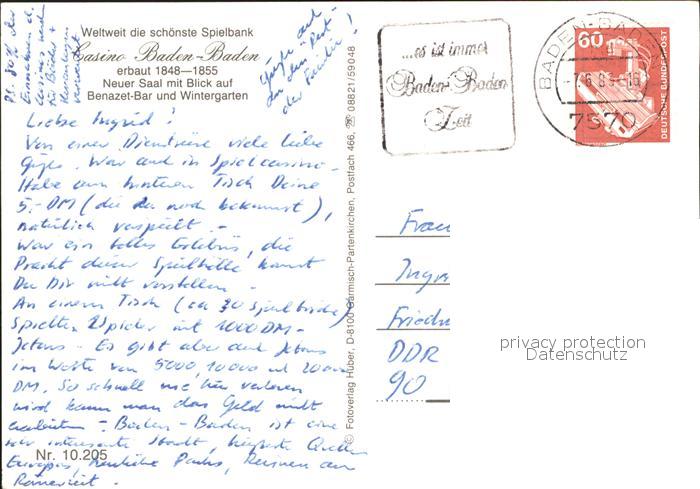 Weltweit die schönste Spielbank
Casino Baden-Baden
erbaut 1848—1855
Neuer Saal mit Blick auf
Benazet-Bar und Wintergarten
Liebe Ingrid!
Von einer Dienstreise viele liebe
Grüße. War auch in Spielcasino.
Habe am hinteren Tisch Deine
5,-DM (die Du noch bekommst),
natürlich verspielt.-
War ein tolles Erlebnis, die
Pracht dieser Spielhölle kannst
Du Dir nicht vorstellen.-
An einem Tisch (ca 30 Spieltische)
spielten 2 Spieler mit 1000 DM-
Jetons. Es gibt aber auch Jetons
im Werte von 5000, 10000 und
DM. So schnell wie hier verloren
wird kann man das Geld nicht
Baden-Baden ist eine
sehr interessante Stadt, Quellen
Europas, Parks, Ruinen aus
Römerzeit.-
Nr. 10.205
P.S. 80% der
Einnahmen d.
Casinos
für
Grüße auch
an den Rest
der Familie!
© Fotoverlag Huber, D-8100 Garmisch-Partenkirchen, Postfach 466, ☎ 08821/59048
...es ist immer
Baden-Baden
Zeit
BADEN-BADEN
7570
60
DEUTSCHE BUNDESPOST
Frau
Ingr
Friedr
DDR
90
privacy protection
Datenschutz